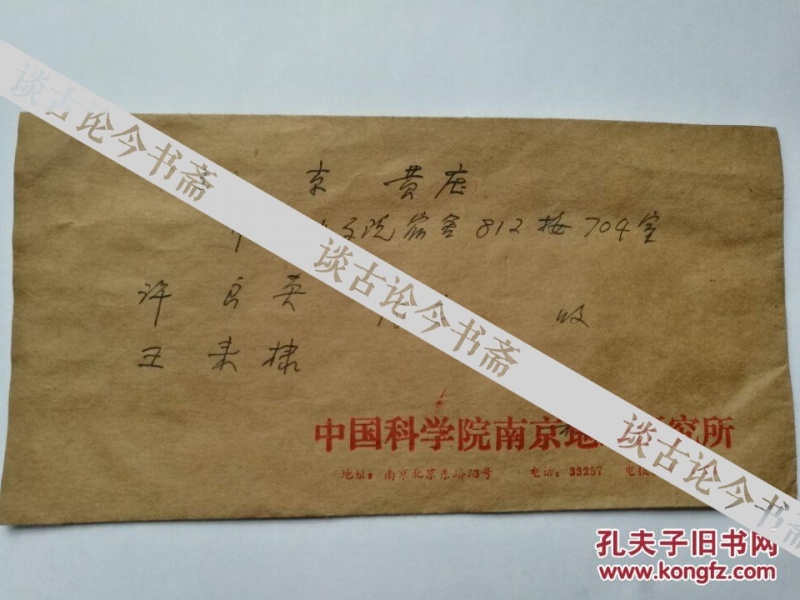 谈古论今书斋
谈古论今书斋
谈古论今书斋
京 黄庄
院宿舍812楼704室
许良英
收
王来棣
中国科学院南京地 究所
地址：南京北京东路73号 电话：33257 电
孔夫子旧书网
www.kongfz.com